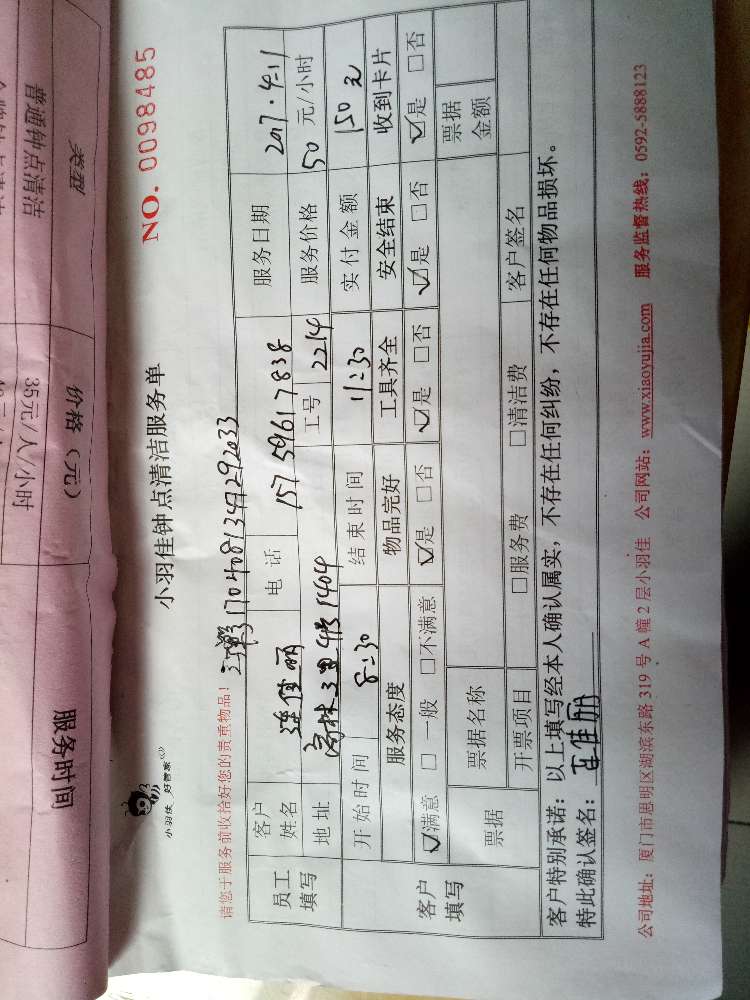 类型
价格（元）
服务时间
普通钟点清洁
35元/人/小时
小羽佳 好管家
小羽佳钟点清洁服务单
NO. 0098485
请您于服务前收拾好您的贵重物品！
1704081347292033
员工填写
客户姓名 连佳丽 电话 15759617838 服务日期 2017.4.11
地址 高林 1404 工号 2214 服务价格 50 元/小时
客户填写
开始时间 8:30 结束时间 11:30 实付金额 150元
服务态度 物品完好 工具齐全 安全结束 收到卡片
☑满意 □一般 □不满意 ☑是 □否 ☑是 □否 ☑是 □否 ☑是 □否
票据 票据名称 票据金额
开票项目 □服务费 □清洁费 客户签名
客户特别承诺：以上填写经本人确认属实，不存在任何纠纷，不存在任何物品损坏。
特此确认签名：连佳丽
公司地址：厦门市思明区湖滨东路 319 号 A 幢 2 层小羽佳 公司网站：www.xiaoyujia.com 服务监督热线：0592-5888123